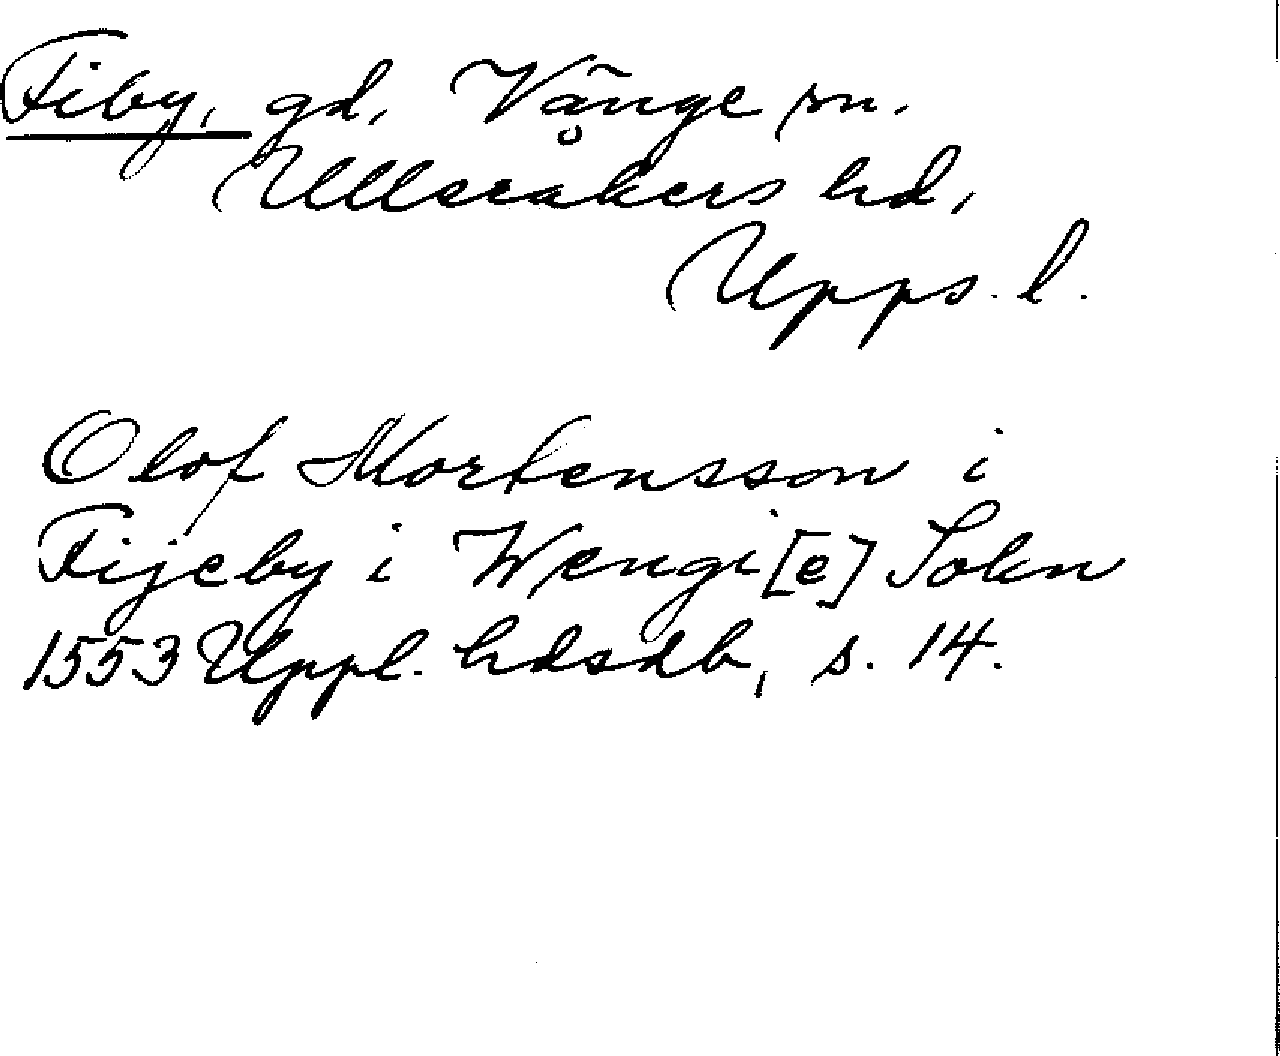 Fiby, gd, Vänge sn.
Ulleråkers hd,
Upps. l.
Olof Mortensson i
Fijeby i Wengi [e] Sokn
1553 Uppl. hdsdb, s. 14.